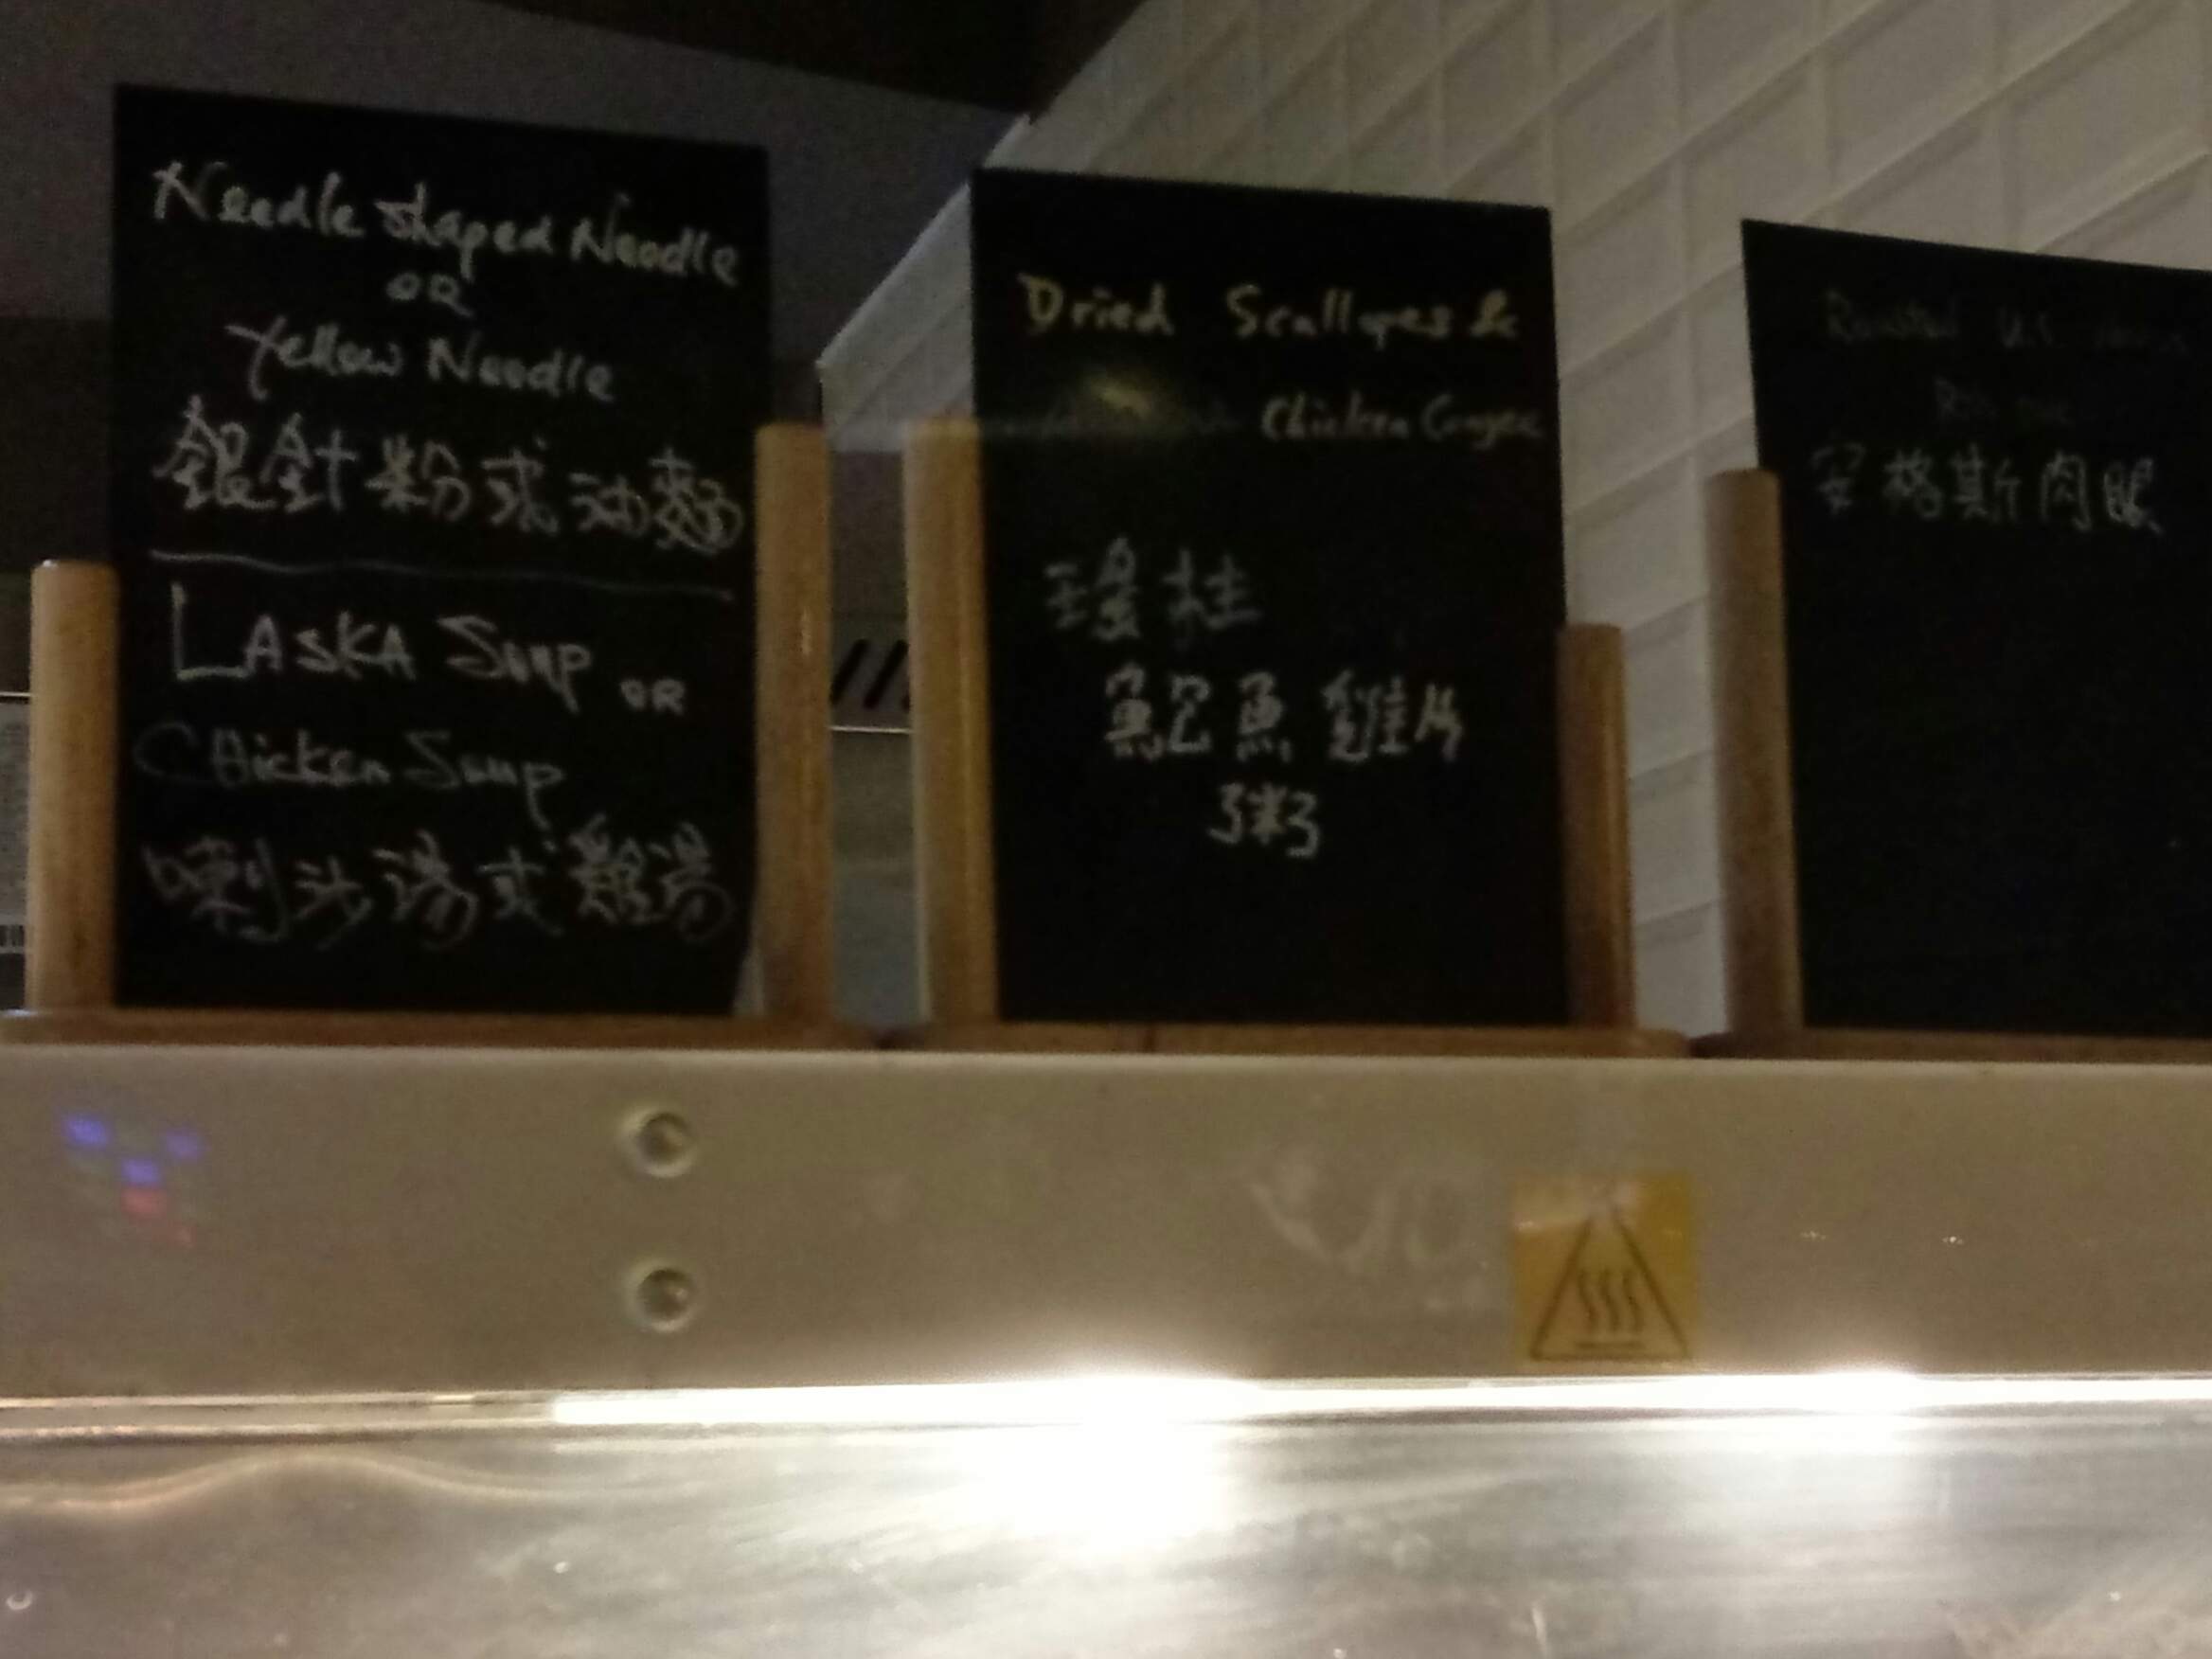 Needle shaped Noodle
OR
Yellow Noodle
銀針粉或油麵
LASKA Soup OR
CHicken Soup
喇沙湯或雞湯
Dried Scallopes &
Chicken Congee
瑤柱
鮑魚雞片
粥
Roasted U.S.
安格斯肉眼